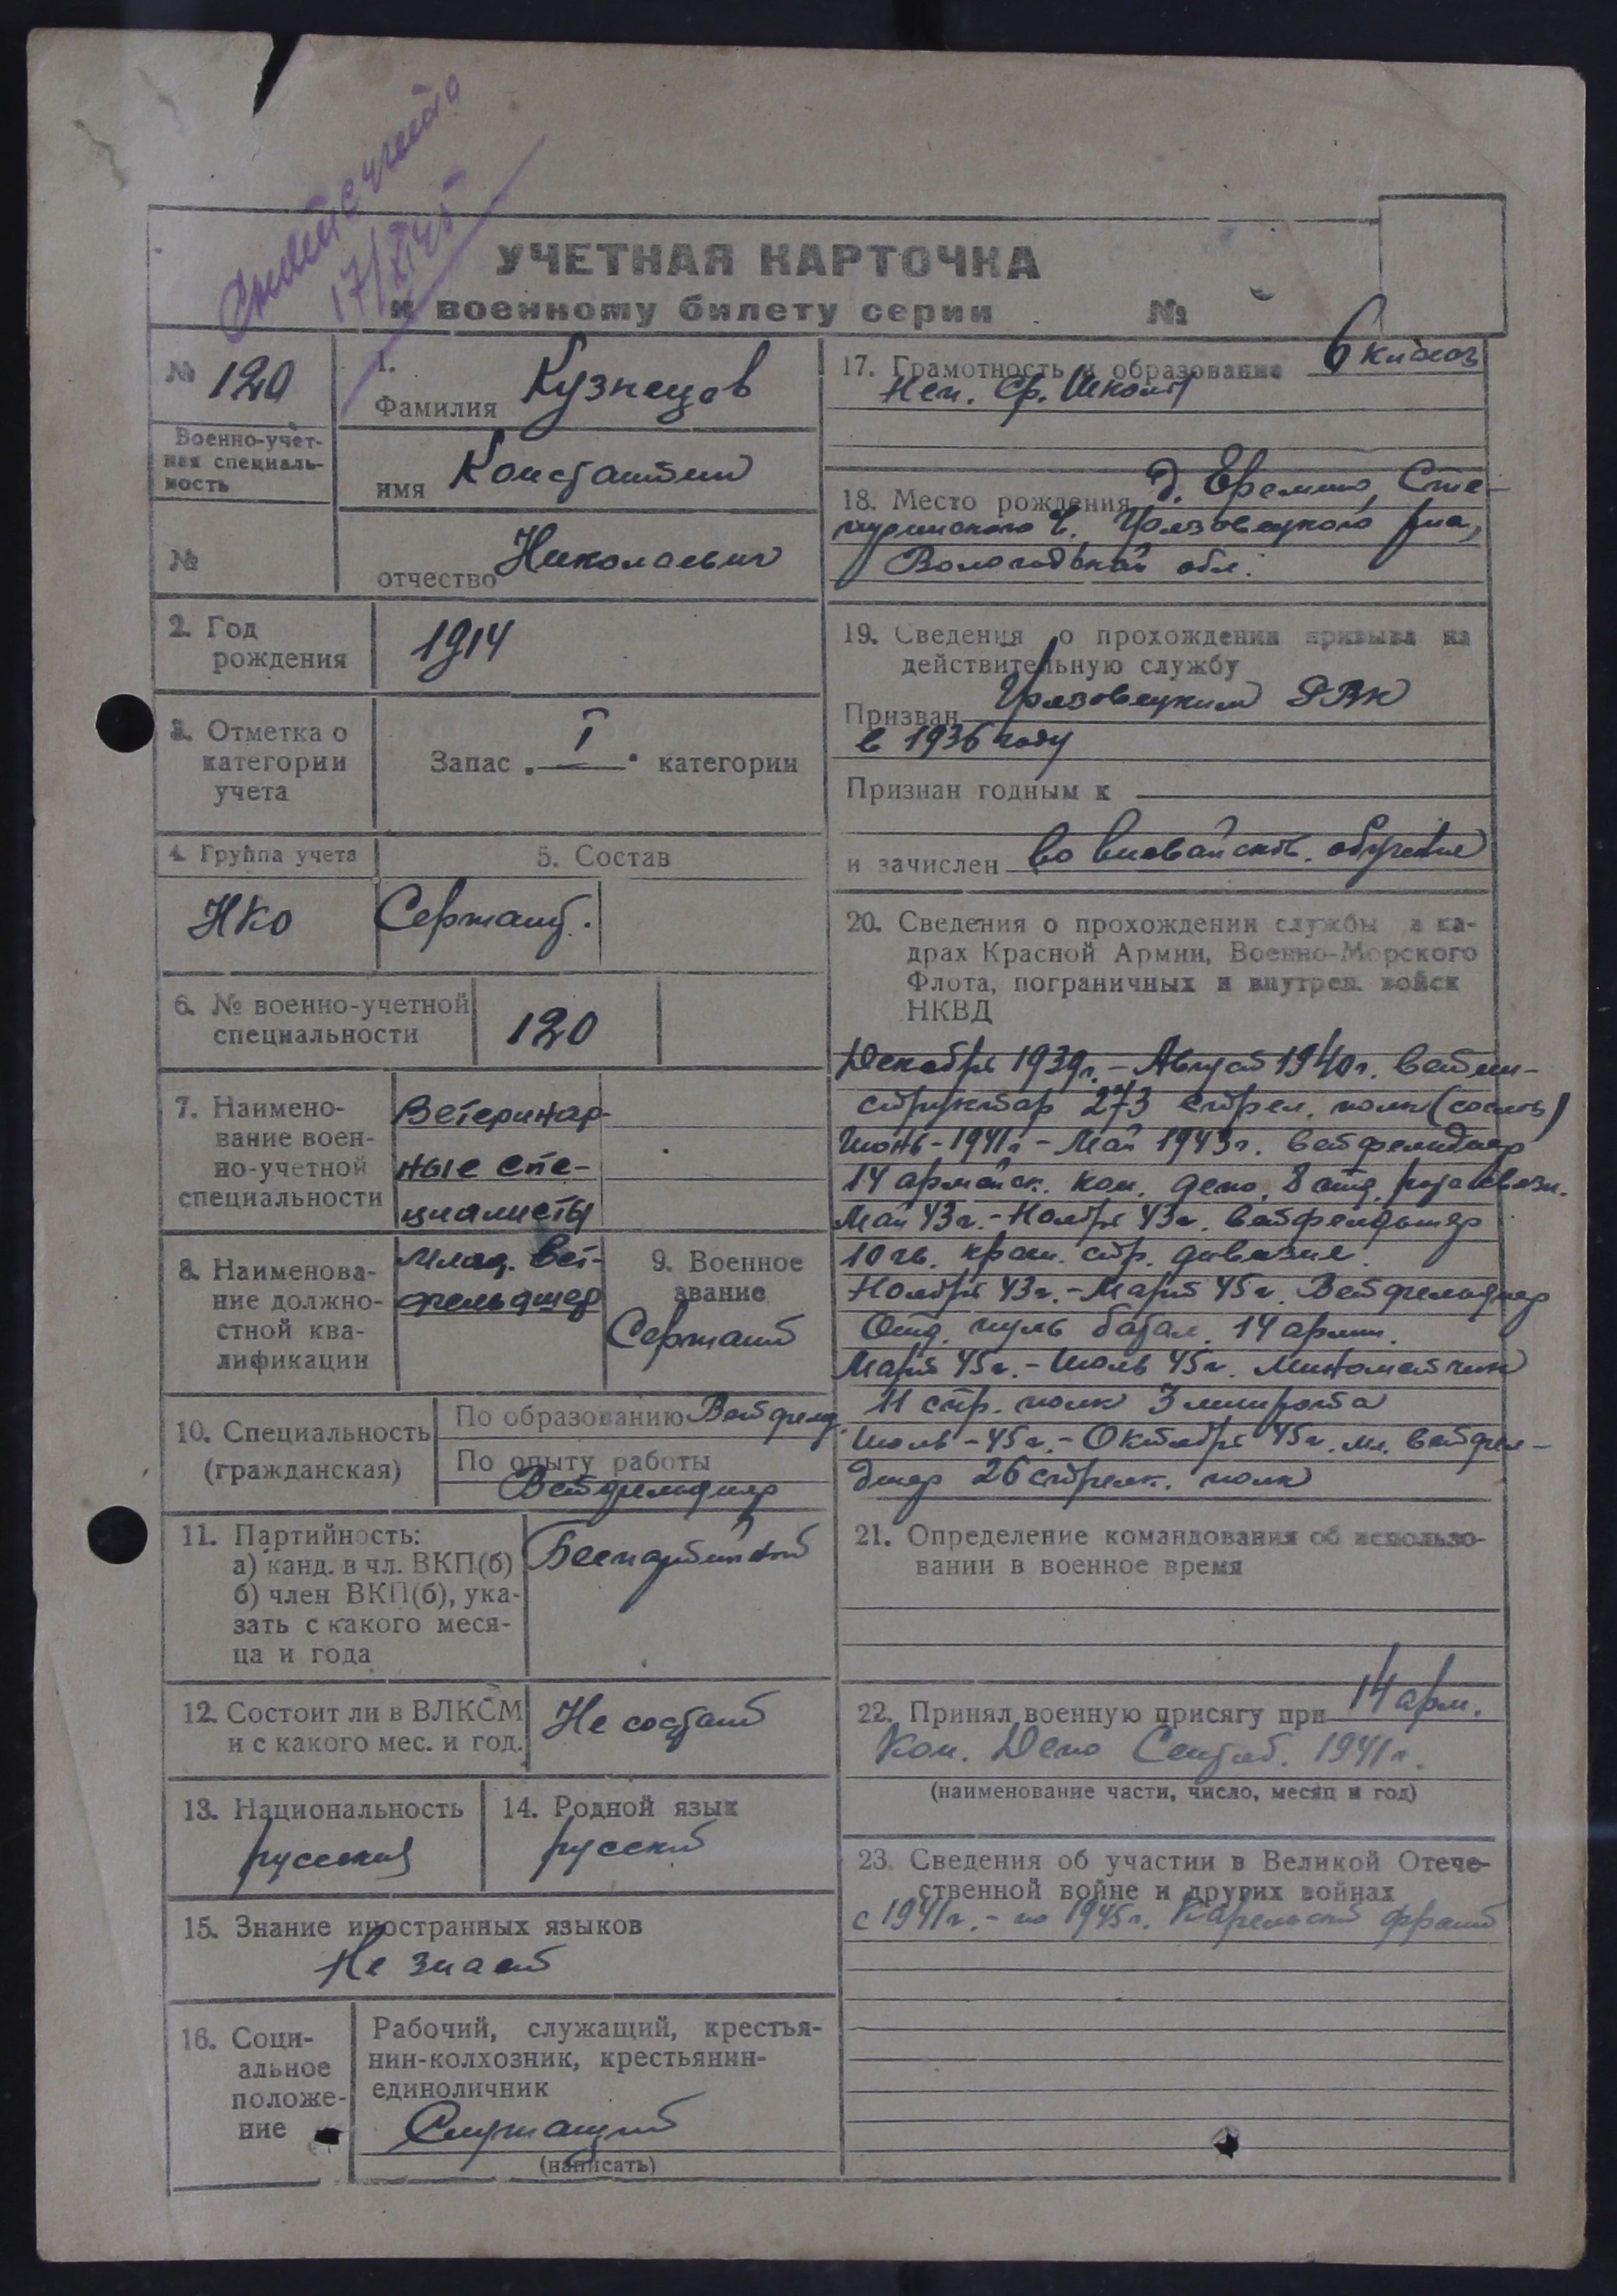 17/XI 45
УЧЕТНАЯ КАРТОЧКА
к военному билету серии №
№ 120
Военно-учет-
ная специаль-
ность
№
1.
Фамилия Кузнецов
имя Константин
отчество Николаевич
2. Год
рождения
1914
3. Отметка о
категории
учета
Запас „ I " категории
4. Группа учета
НКО
5. Состав
Сержант.
6. № военно-учетной
специальности
120
7. Наимено-
вание воен-
но-учетной
специальности
Ветеринар-
ные спе-
циалисты
8. Наименова-
ние должно-
стной ква-
лификации
Млад. вет-
фельдшер
9. Военное
звание
Сержант
10. Специальность
(гражданская)
По образованию Ветфельд.
По опыту работы
Ветфельдшер
11. Партийность:
а) канд. в чл. ВКП(б)
б) член ВКП(б), ука-
зать с какого меся-
ца и года
Беспартийный
12. Состоит ли в ВЛКСМ
и с какого мес. и год.
Не состоит
13. Национальность
русский
14. Родной язык
русский
15. Знание иностранных языков
Не знает
16. Соци-
альное
положе-
ние
Рабочий, служащий, крестья-
нин-колхозник, крестьянин-
единоличник
Служащий
(написать)
17. Грамотность и образование 6 класс
Неп. ср. школы
18. Место рождения д. Еремино,
Грязовецкого р-на,
Вологодской обл.
19. Сведения о прохождении призыва на
действительную службу
Призван Грязовецким РВК
в 1936 году
Признан годным к
и зачислен во вневойсков. обучение
20. Сведения о прохождении службы в ка-
драх Красной Армии, Военно-Морского
Флота, пограничных и внутрен. войск
НКВД
Декабрь 1939г. - Август 1940г. ветин-
структор 273 стрел. полк
Июнь - 1941г. - Май 1943г. ветфельдшер
14 армейск. кон. депо, 8 отд. рота связи.
Май 43г. - Ноябрь 43г. ветфельдшер
10 гв. стр. дивизия.
Ноябрь 43г. - Март 45г. Ветфельдшер
Отд. пуль батал. 14 армии.
Март 45г. - Июль 45г. Минометчик
11 стр. полк 3 минрота
Июль - 45г. - Октябрь 45г. мл. ветфель-
дшер 26 стрелк. полк
21. Определение командования об использо-
вании в военное время
22. Принял военную присягу при 14 арм.
Кон. Депо Сентяб. 1941г.
(наименование части, число, месяц и год)
23. Сведения об участии в Великой Отече-
ственной войне и других войнах
с 1941г. - по 1945г. Карельский фронт